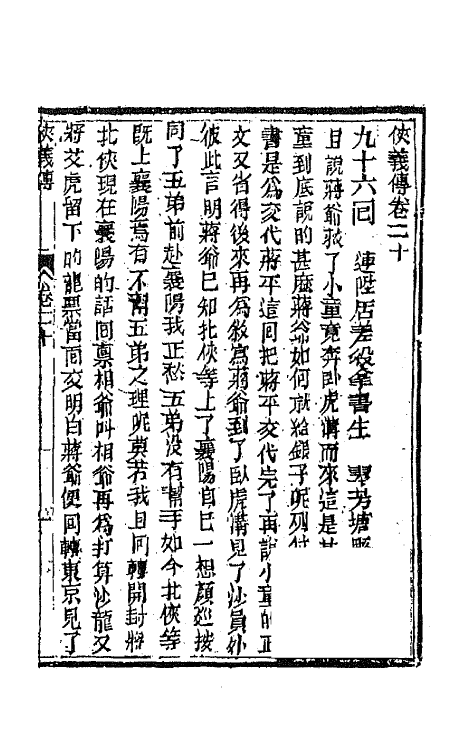 俠義傳卷二十
九十六回　連陞店差役拿書生　翠芳塘縣
且說蔣爺救了小童竟奔臥虎溝而來這是甚
童到底說的甚麼蔣爺如何就給銀子呢列位
書是爲交代蔣平這回把蔣平交代完了再說小童的正
文又省得後來再爲敘寫蔣爺到了臥虎溝見了沙員外
彼此言明蔣爺已知北俠等上了襄陽自己一想顏巡按
同了五弟前赴襄陽我正愁五弟沒有幫手如今北俠等
既上襄陽焉有不幫五弟之理呢莫若我且回轉開封將
北俠現在襄陽的話回禀相爺叫相爺再爲打算沙龍又
將艾虎留下的龍票當面交明白蔣爺便回轉東京見了
俠義傳　卷二十　一